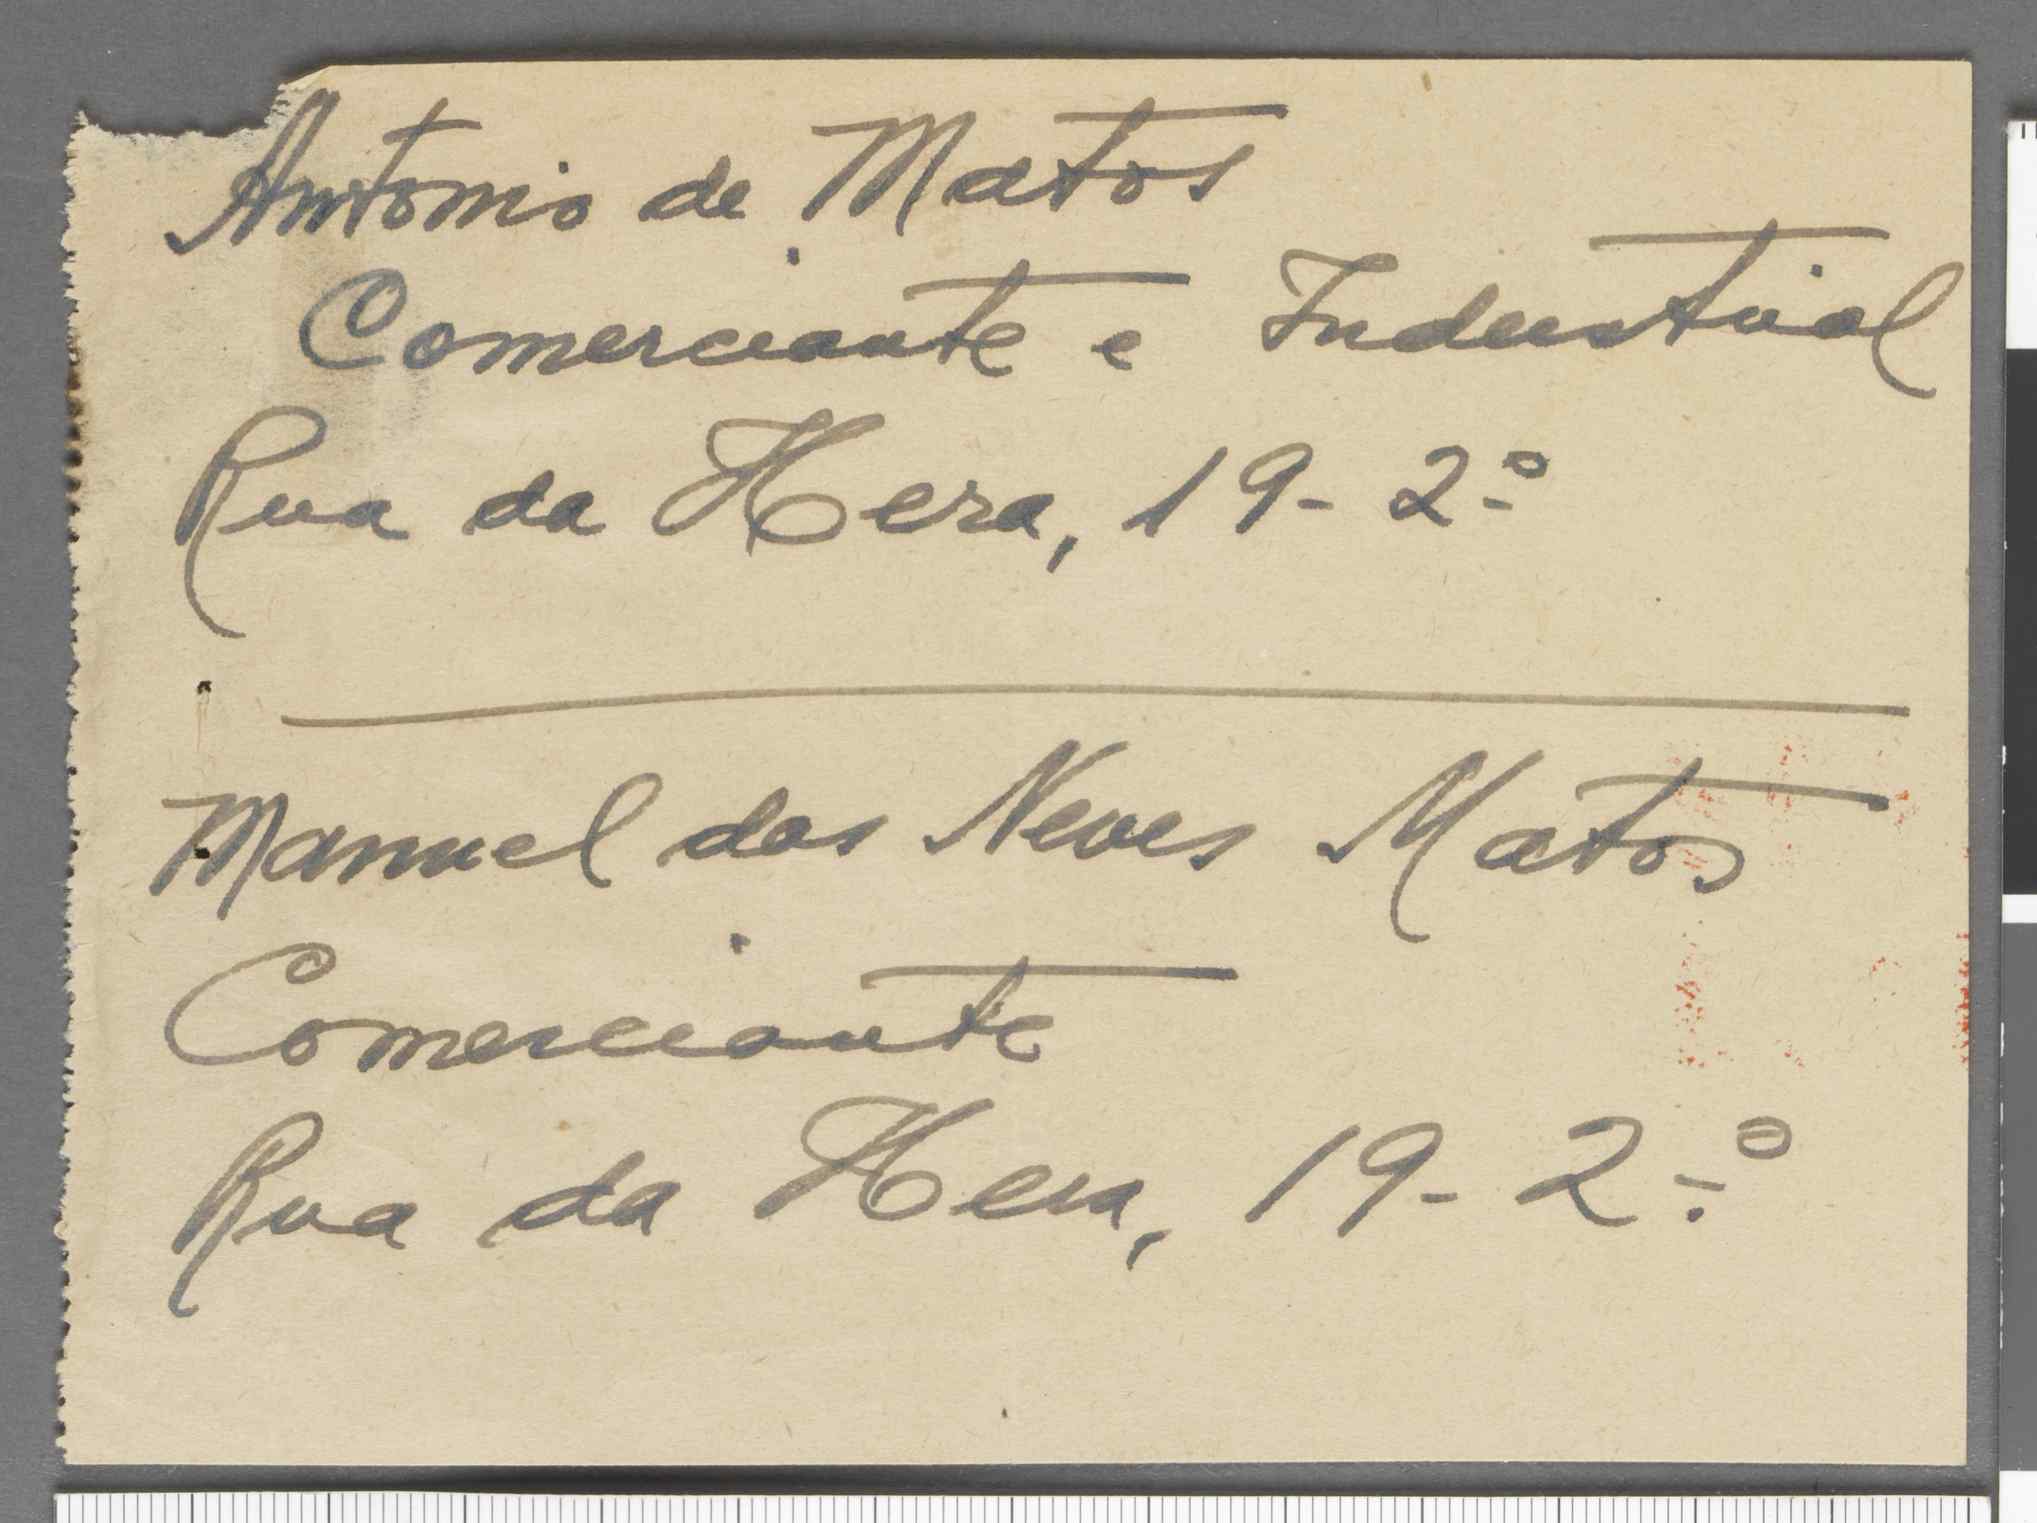 Antonio de Matos
Comerciante e Industrial
Rua da Hera, 19-2º
Manuel das Neves Matos
Comerciante
Rua da Hera, 19-2º